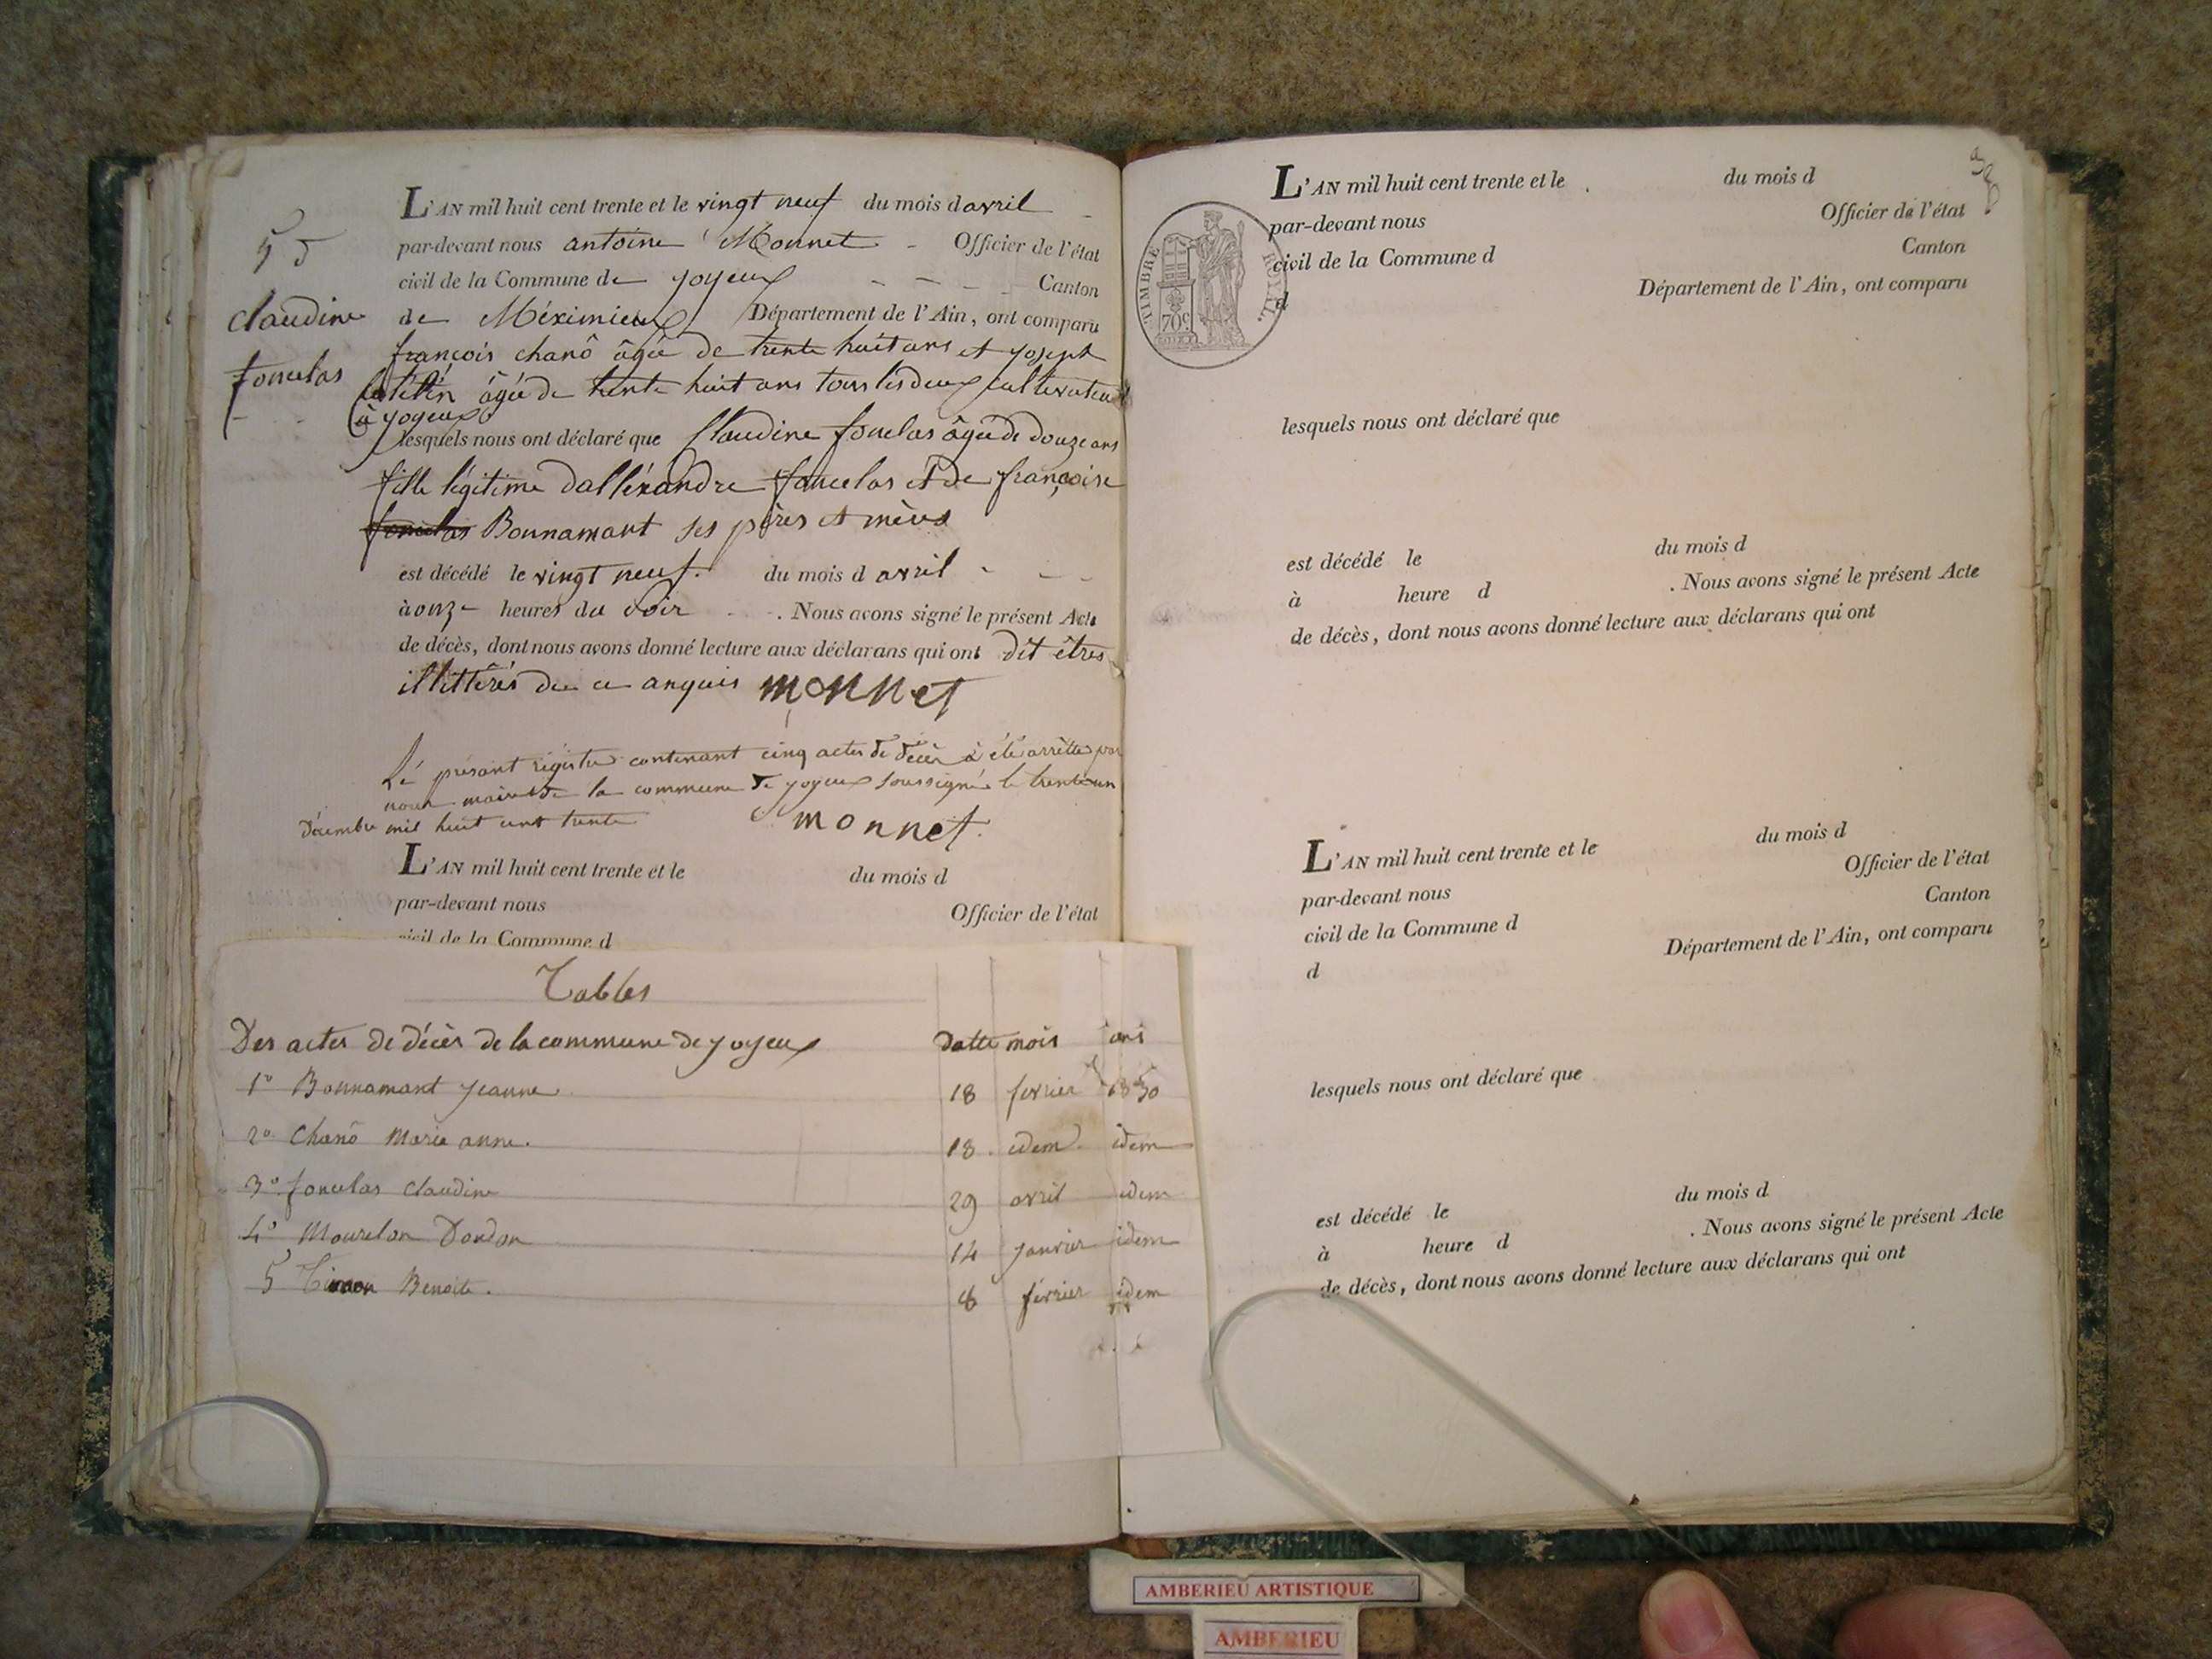 L'AN mil huit cent trente et le vingt neuf du mois d avril
par-devant nous antoine Monnet Officier de l'état
civil de la Commune de joyeux Canton
de Méximieux Département de l'Ain, ont comparu
françois chanô âgé de trente huit ans et joseph
âgé de trente huit ans tous les deux cultivateurs
à joyeux
lesquels nous ont déclaré que Claudine fonclas âgé de douze ans
fille légitime d'alléxandre foncelas et de françoise
Bonnamant ses pères et mères
est décédé le vingt neuf du mois d avril
à onze heures du soir . Nous avons signé le présent Acte
de décès, dont nous avons donné lecture aux déclarans qui ont dit êtres
illittérés de ce anquis monnet
5
claudine
fonclas
Lé présant régistre contenant cinq actes de décès à été arrêtté par
nous maire de la commune de joyeux soussigné le trente un
Décembre mil huit cent trente monnet
L'AN mil huit cent trente et le du mois d
par-devant nous Officier de l'état
civil de la Commune d
Tables
Des actes de décès de la commune de joyeux Datte mois ans
1º Bonnamant jeanne 18 fevrier 1830
2º Chanô Marie anne. 18 idem idem
3º fonclas Claudine 29 avril idem
4º Mourelon Dondon 14 janvier idem
5 Benoite. 8 février idem
L'AN mil huit cent trente et le du mois d
par-devant nous Officier de l'état
civil de la Commune d Canton
d Département de l'Ain, ont comparu
TIMBRE ROYAL.
70c
lesquels nous ont déclaré que
est décédé le du mois d
à heure d . Nous avons signé le présent Acte
de décès, dont nous avons donné lecture aux déclarans qui ont
L'AN mil huit cent trente et le du mois d
par-devant nous Officier de l'état
civil de la Commune d Canton
d Département de l'Ain, ont comparu
lesquels nous ont déclaré que
est décédé le du mois d
à heure d . Nous avons signé le présent Acte
de décès, dont nous avons donné lecture aux déclarans qui ont
AMBERIEU ARTISTIQUE
AMBERIEU